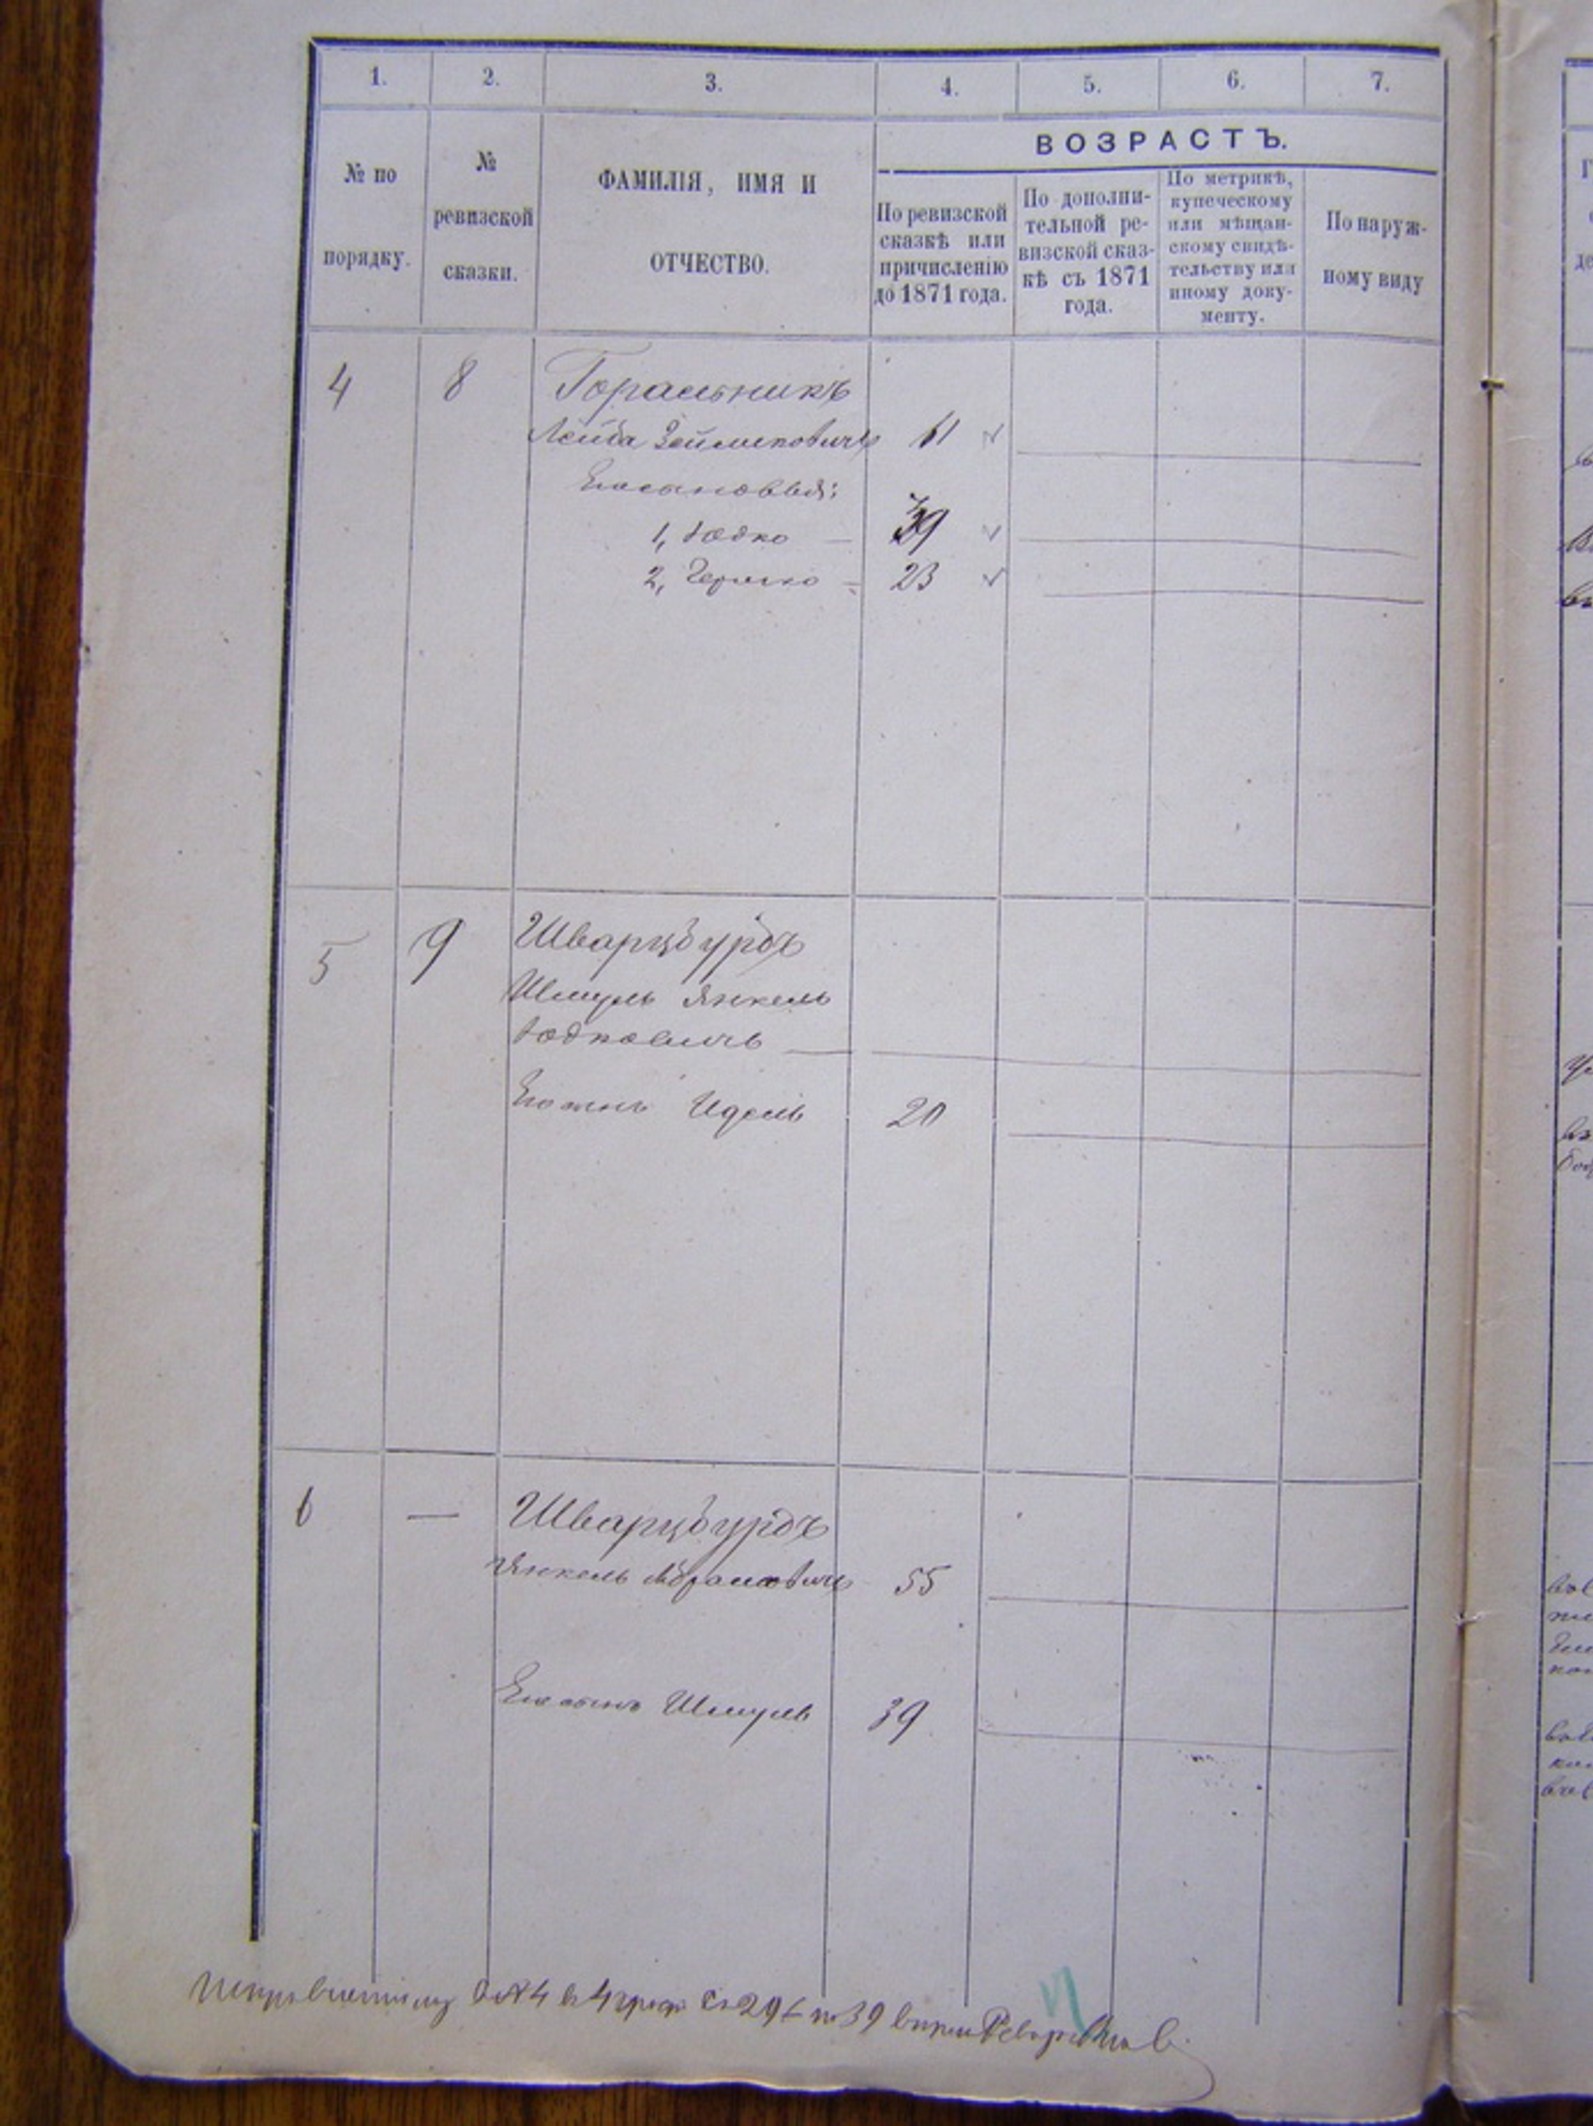 1. 2. 3. 4. 5. 6. 7.
ВОЗРАСТЪ.
№ по
порядку.
№
ревизской
сказки.
ФАМИЛІЯ, ИМЯ И
ОТЧЕСТВО.
По ревизской
сказкѣ или
причисленію
до 1871 года.
По дополни-
тельной ре-
визской сказ-
кѣ съ 1871
года.
По метрикѣ,
купеческому
или мѣщан-
скому свидѣ-
тельству или
иному доку-
менту.
По наруж-
ному виду
4 8
Лейба 61
Его сыновья:
1, Юдко 39
2, Гершко 23
5 9 Шварцбурдъ
Шмуль Янкель
Юдковичъ
Его сынъ Идель 20
6 — Шварцбурдъ
Янкель Абрамовичъ 55
Его сынъ Шмуль 39
№ 4 в 4 граф с 29 на 39